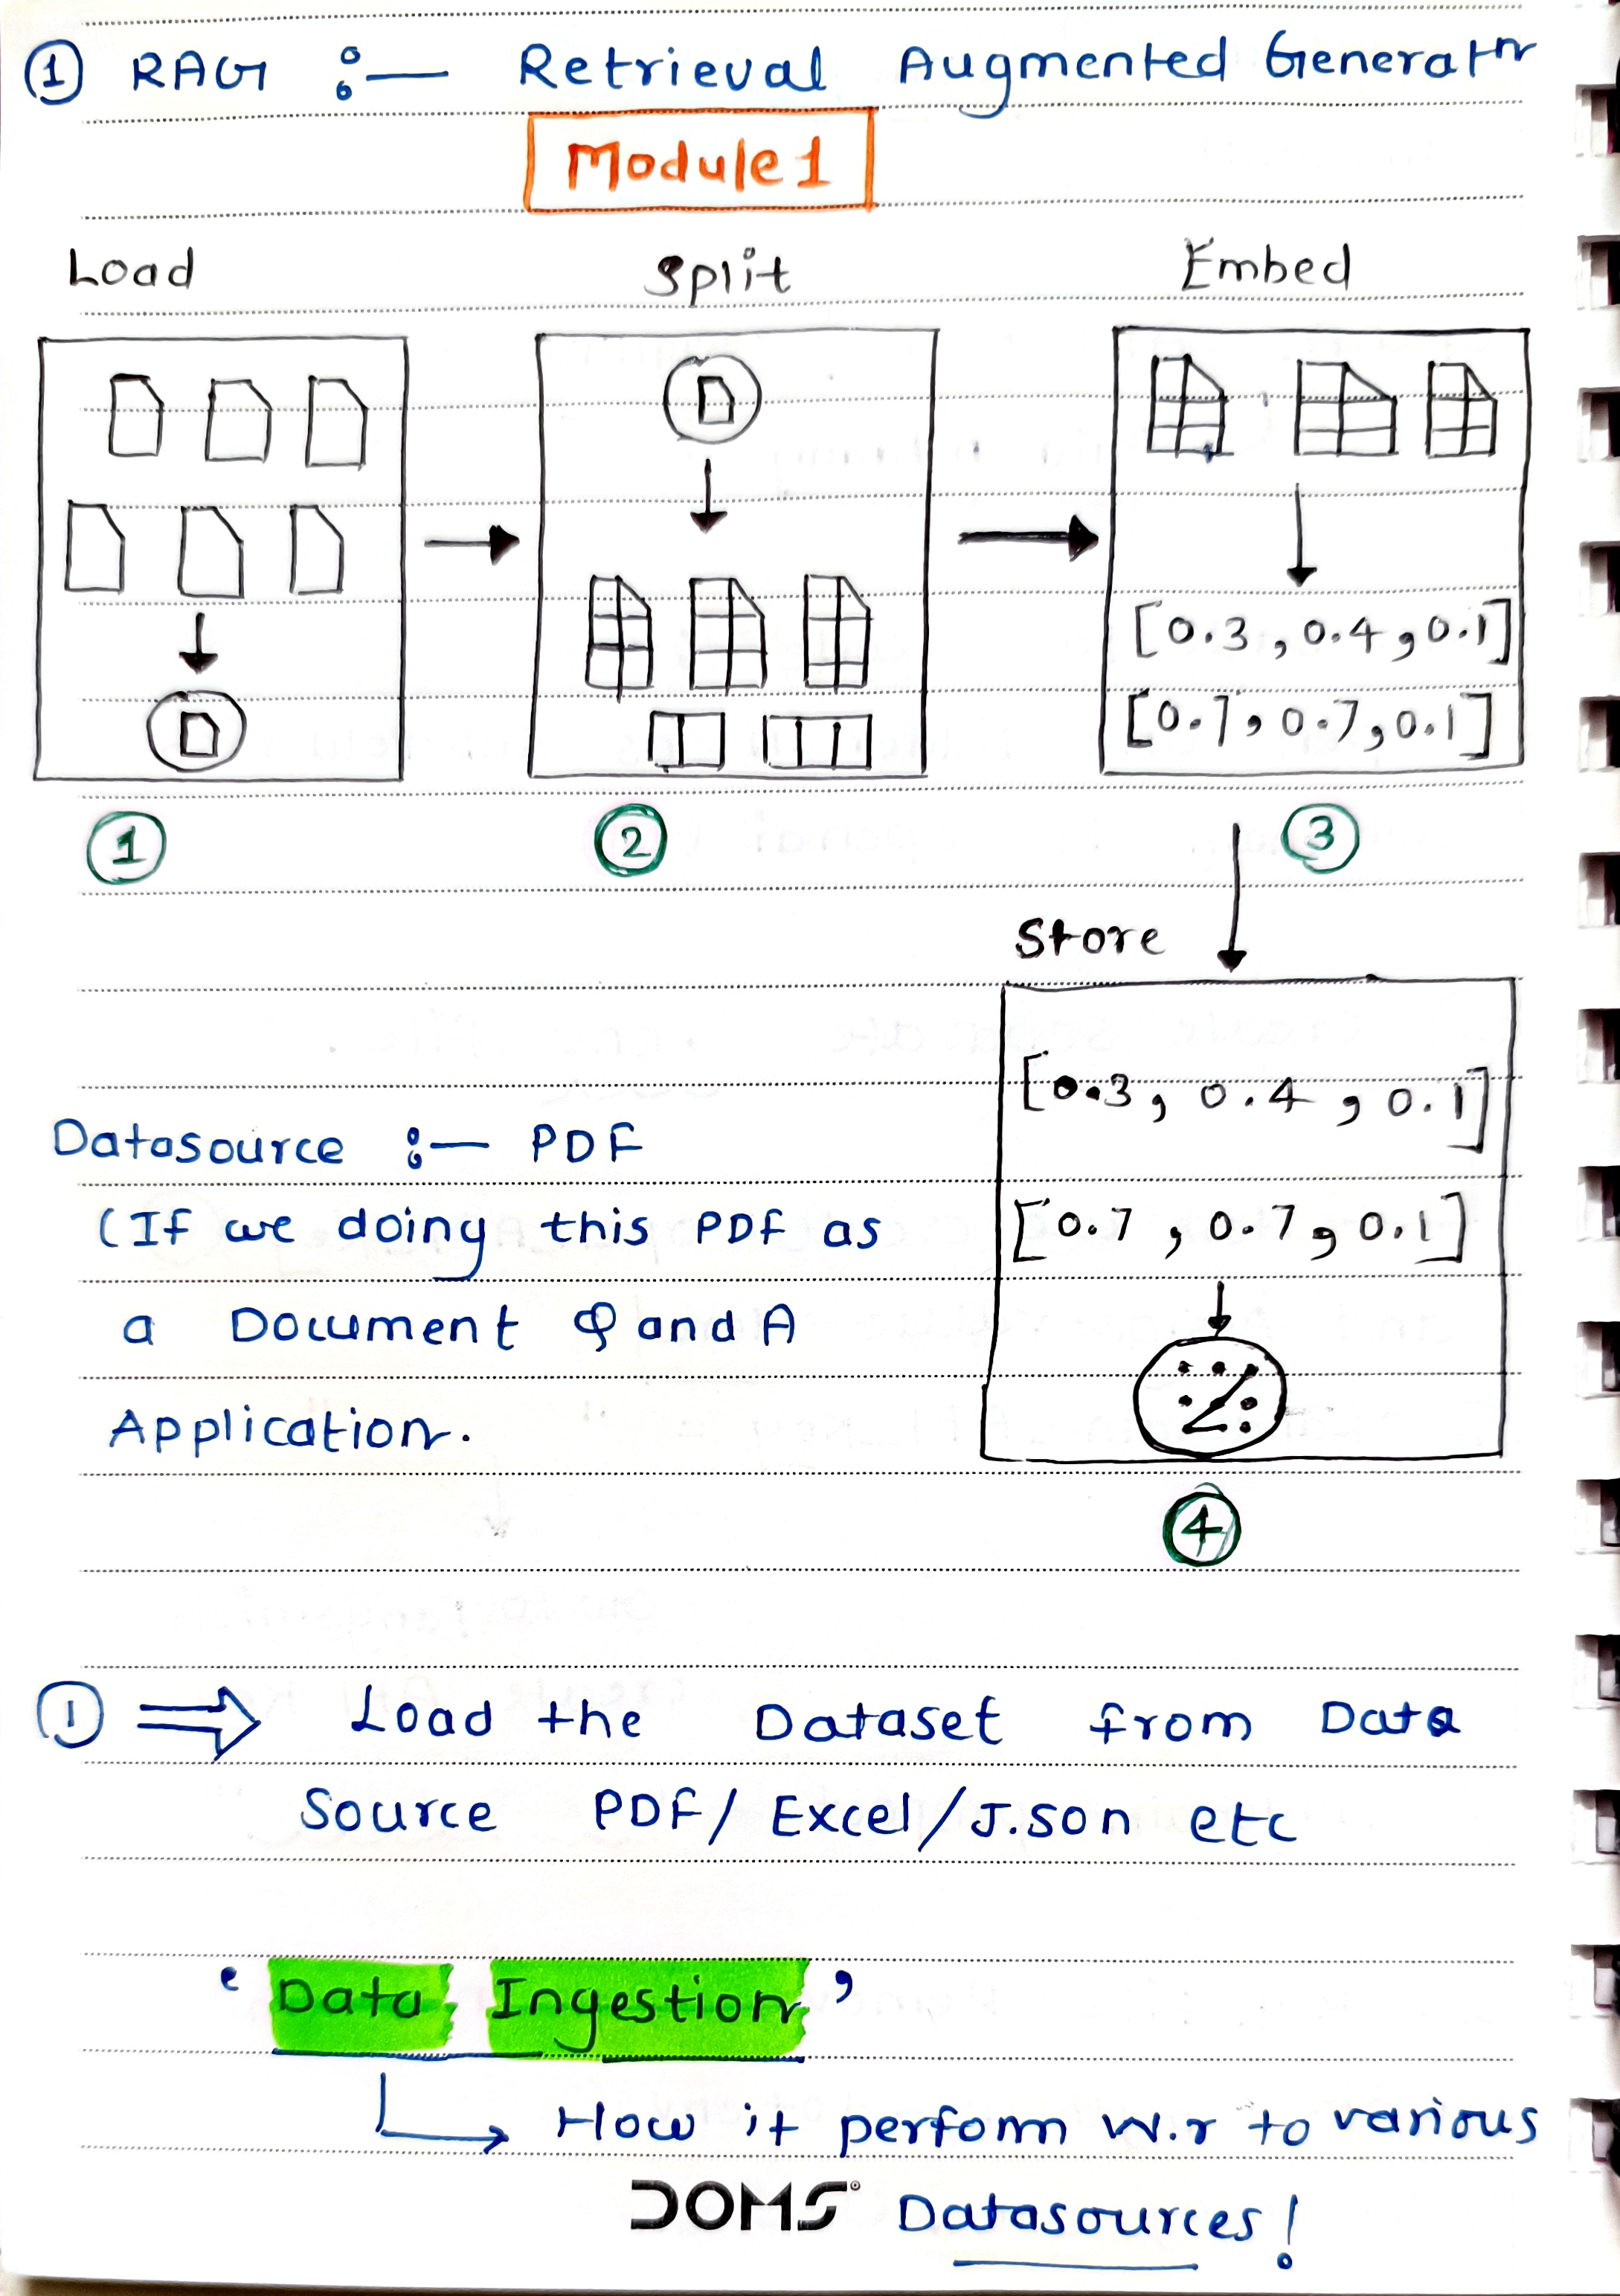 ① RAG :— Retrieval Augmented Generatn
Module 1
Load Split Embed
[0.3, 0.4, 0.1]
[0.7, 0.7, 0.1]
① ② ③
Store
[0.3, 0.4, 0.1]
[0.7, 0.7, 0.1]
④
Datasource :— PDF
(If we doing this PDF as
a Document Q and A
Application.
① ⇒ Load the Dataset from Data
Source PDF/ Excel/J.son etc
‘Data Ingestion’
↳ How it perform w.r to various
DOMS Datasources!